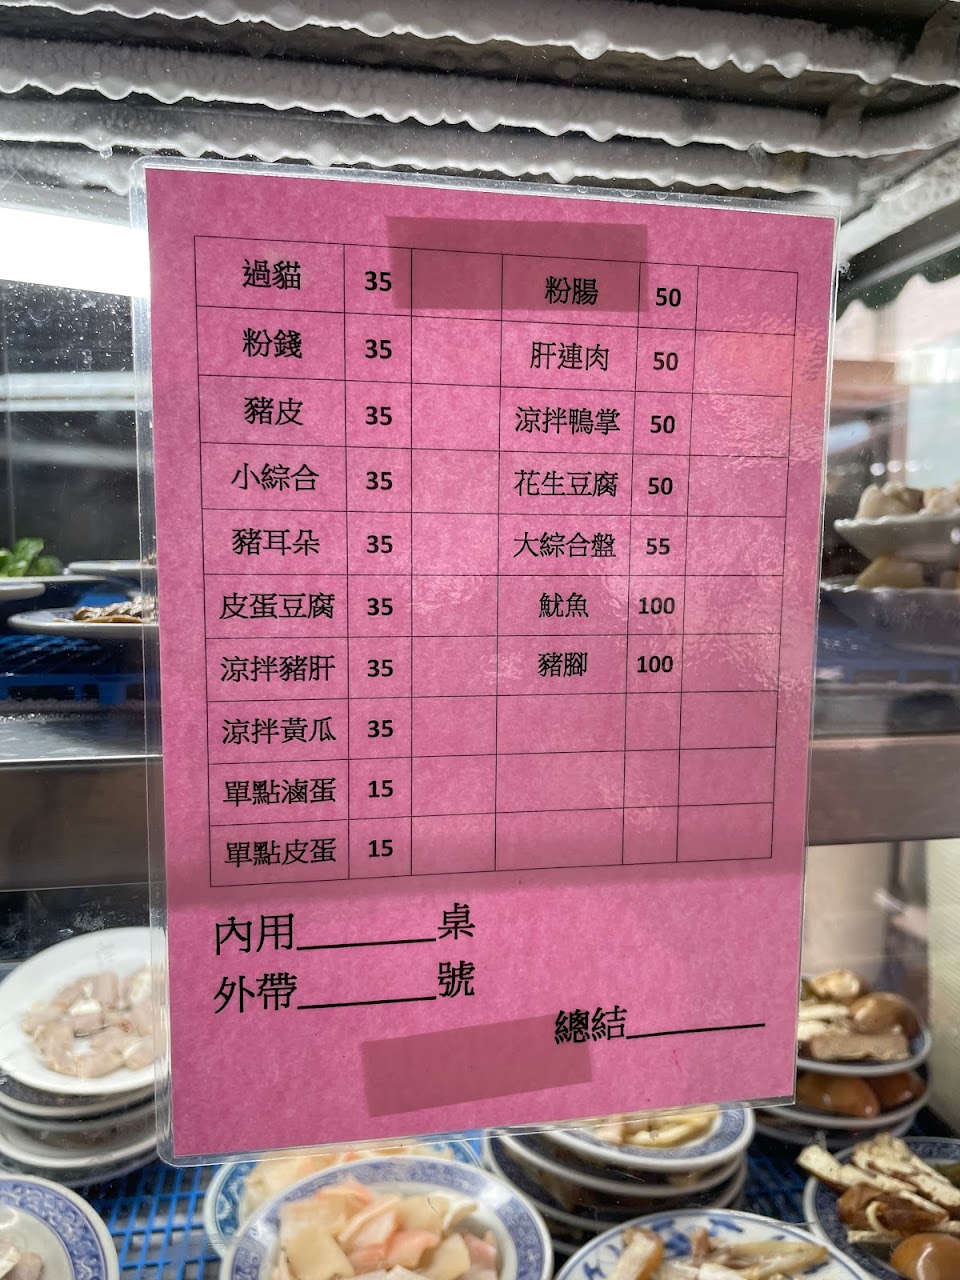 過貓 35 粉腸 50
粉錢 35 肝連肉 50
豬皮 35 涼拌鴨掌 50
小綜合 35 花生豆腐 50
豬耳朵 35 大綜合盤 55
皮蛋豆腐 35 魷魚 100
涼拌豬肝 35 豬腳 100
涼拌黃瓜 35
單點滷蛋 15
單點皮蛋 15
內用______桌
外帶______號
總結______